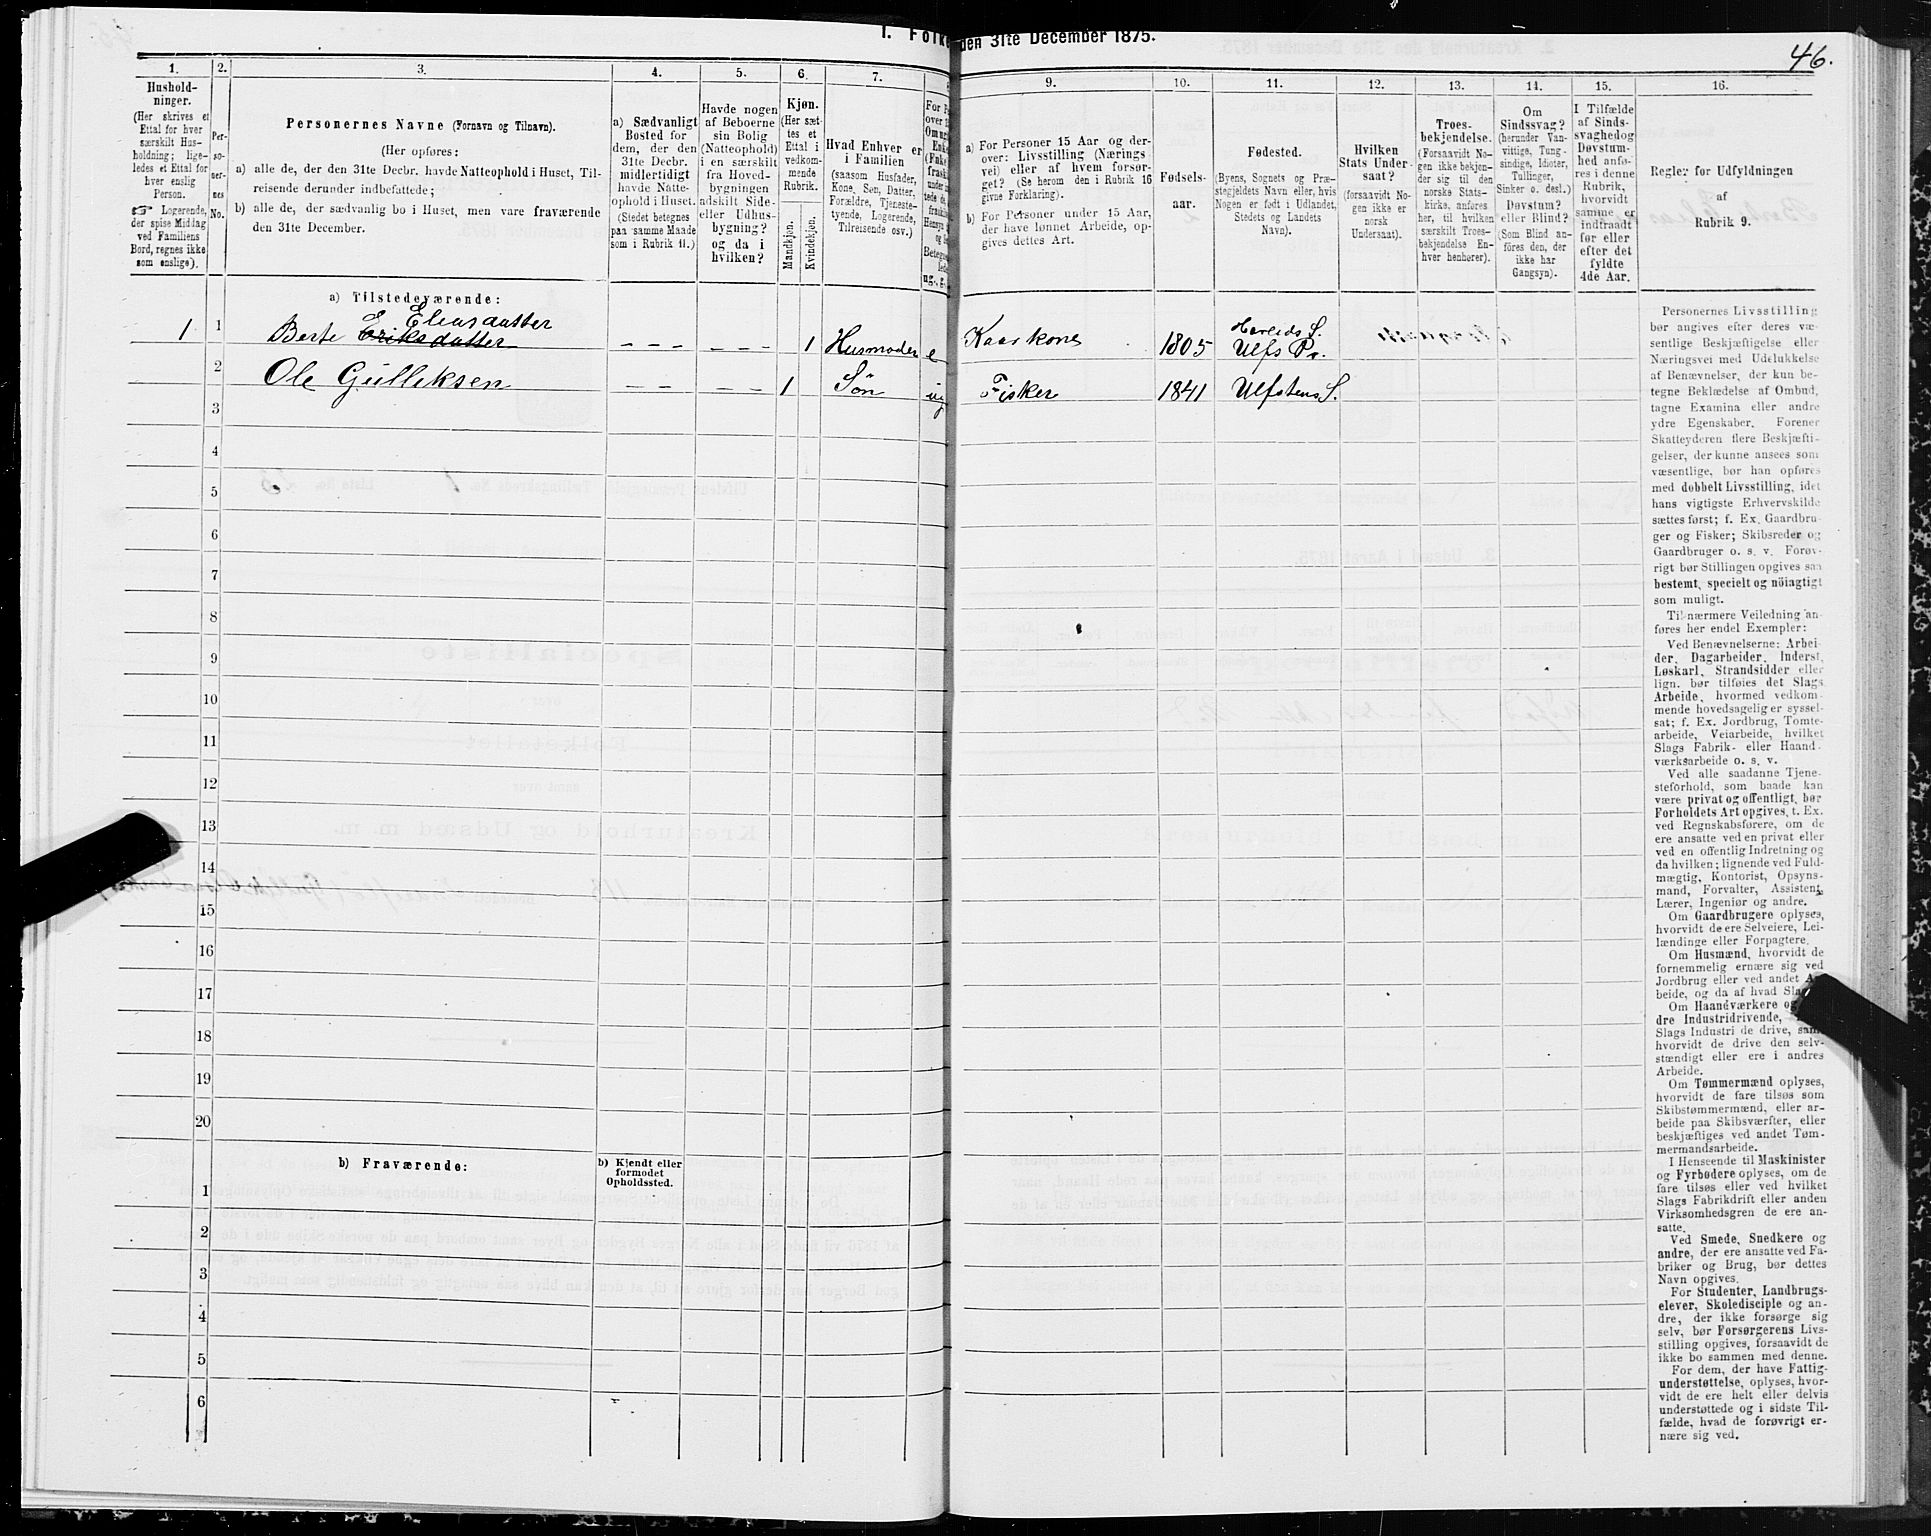 46.
1. Folke
den 31te December 1875.
1.
Hushold-
ninger.
(Her skrives et
Ettal for hver
særskilt Hus-
holdning; lige-
ledes et Ettal for
hver enslig
Person.
☞ Logerende,
der spise Middag
ved Familiens
Bord, regnes ikke
som enslige).
2.
Per-
so-
ner-
nes
No.
3.
Personernes Navne (Fornavn og Tilnavn).
(Her opføres:
a) alle de, der den 31te Decbr. havde Natteophold i Huset, Til-
reisende derunder indbefattede;
b) alle de, der sædvanlig bo i Huset, men vare fraværende
den 31te December.
4.
a) Sædvanligt
Bosted for
dem, der den
31te Decbr.
midlertidigt
havde Natte-
ophold i Huset.
(Stedet betegnes
paa samme Maade
som i Rubrik 11.)
5.
Havde nogen
af Beboerne
sin Bolig
(Natteophold)
i en særskilt
fra Hoved-
bygningen
adskilt Side-
eller Udhus-
bygning?
og da i
hvilken?
6.
Kjøn.
(Her sæt-
tes et
Ettal i
vedkom-
mende
Rubrik.
Mandkjøn.
Kvindekjøn.
7.
Hvad Enhver er
i Familien
(saasom Husfader,
Kone, Søn, Datter,
Forældre, Tjeneste-
tyende, Logerende,
Tilreisende osv.)
9.
a) For Personer 15 Aar og der-
over: Livsstilling (Nærings-
vei) eller af hvem forsør-
get? (Se herom den i Rubrik 16
givne Forklaring).
b) For Personer under 15 Aar,
der have lønnet Arbeide, op-
gives dettes Art.
10.
Fødsels-
aar.
11.
Fødested.
(Byens, Sognets og Præ-
stegjeldets Navn eller, hvis
Nogen er født i Udlandet,
Stedets og Landets
Navn).
12.
Hvilken
Stats Under-
saat?
(forsaavidt No-
gen ikke er
norsk
Undersaat).
13.
Troes-
bekjendelse.
(Forsaavidt No-
gen ikke bekjen-
der sig til den
norske Stats-
kirke, anføres
her, til hvilken
særskilt Troes-
bekjendelse En-
hver henhører).
14.
Om
Sindssvag?
(herunder Van-
vittige, Tung-
sindige, Idioter,
Tullinger,
Sinker o. desl.)
Døvstum?
eller Blind?
(Som Blind an-
føres den, der
ikke har
Gangsyn).
15.
I Tilfælde
af Sinds-
svaghed og
Døvstum-
hed anfø-
res i denne
Rubrik,
hvorvidt
samme er
indtraadt
før eller
efter det
fyldte
4de Aar.
16.
Regler for Udfyldningen
af
Rubrik 9.
a) Tilstedeværende:
Eleasdatter
1 1 Berte Eriksdatter – – – – – – 1 Husmoder e Kaarkone 1805 Hareids S.
Ulfs Pr.
2 Ole Gulliksen – – – – – 1 Søn ug Fisker 1841 Ulfstens S.
3
4
5
6
7
8
9
10
11
12
13
14
15
16
17
18
19
20
b) Fraværende:
b) Kjendt eller
formodet
Opholdssted.
1
2
3
4
5
6
Personernes Livsstilling
bør angives efter deres væ-
sentlige Beskjæftigelse eller
Næringsvei med Udelukkelse
af Benævnelser, der kun be-
tegne Beklædelse af Ombud,
tagne Examina eller andre
ydre Egenskaber. Forener
Skatteyderen flere Beskjæfti-
gelser, der kunne ansees som
væsentlige, bør han opføres
med dobbelt Livsstilling, idet
hans vigtigste Erhvervskilde
sættes først; f. Ex. Gaardbru-
ger og Fisker; Skibsreder og
Gaardbruger o. s. v. Forøv-
rigt bør Stillingen opgives saa
bestemt, specielt og nöiagtigt
som muligt.
Til nærmere Veiledning an-
føres her endel Exempler:
Ved Benævnelserne: Arbei-
der, Dagarbeider, Inderst,
Løskarl, Strandsidder eller
lign. bør tilføies det Slags
Arbeide, hvormed vedkom-
mende hovedsagelig er syssel-
sat; f. Ex. Jordbrug, Tomte-
arbeide, Veiarbeide, hvilket
Slags Fabrik- eller Haand-
værksarbeide o. s. v.
Ved alle saadanne Tjene-
steforhold, som baade kan
være privat og offentligt, bør
Forholdets Art opgives, t. Ex.
ved Regnskabsførere, om de
ere ansatte ved en privat eller
ved en offentlig Indretning og
da hvilken; lignende ved Fuld-
mægtig, Kontorist, Opsyns-
mand, Forvalter, Assistent,
Lærer, Ingeniør og andre.
Om Gaardbrugere oplyses,
hvorvidt de ere Selveiere, Lei-
lændinge eller Forpagtere.
Om Husmænd, hvorvidt de
fornemmelig ernære sig ved
Jordbrug eller ved andet Ar-
beide, og da af hvad Slags
Om Haandværkere og
dre Industridrivende,
Slags Industri de drive, samt
hvorvidt de drive den selv-
stændigt eller ere i andres
Arbeide.
Om Tømmermænd oplyses,
hvorvidt de fare tilsøs som
Skibstømmermænd, eller ar-
beide paa Skibsværfter, eller
beskjæftiges ved andet Tøm-
mermandsarbeide.
I Henseende til Maskinister
og Fyrbødere oplyses, om de
fare tilsøs eller ved hvilket
Slags Fabrikdrift eller anden
Virksomhedsgren de ere an-
satte.
Ved Smede, Snedkere og
andre, der ere ansatte ved Fa-
briker og Brug, bør dettes
Navn opgives.
For Studenter, Landbrugs-
elever, Skoledisciple og an-
dre, der ikke forsørge sig
selv, bør Forsørgerens Livs-
stilling opgives, forsaavidt de
ikke bo sammen med denne.
For dem, der have Fattig-
understøttelse, oplyses, hvor-
vidt de ere helt eller delvis
understøttede og i sidste Til-
fælde, hvad de forøvrigt er-
nære sig ved.